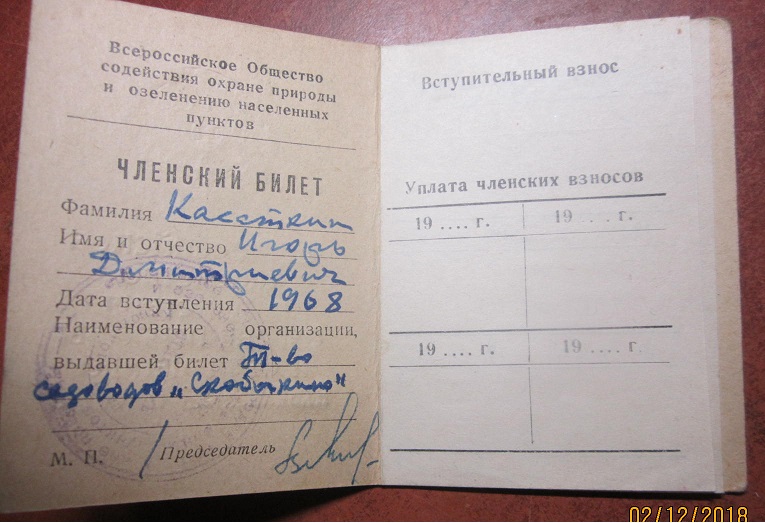 Всероссийское Общество
содействия охране природы
и озеленению населенных
пунктов
ЧЛЕНСКИЙ БИЛЕТ
Фамилия Касаткин
Имя и отчество Игорь
Дмитриевич
Дата вступления 1968
Наименование организации,
выдавшей билет Т-во
садоводов „Скобыкино"
М. П. Председатель
Вступительный взнос
Уплата членских взносов
19 .... г. 19 .... г.
19 .... г. 19 .... г.
02/12/2018